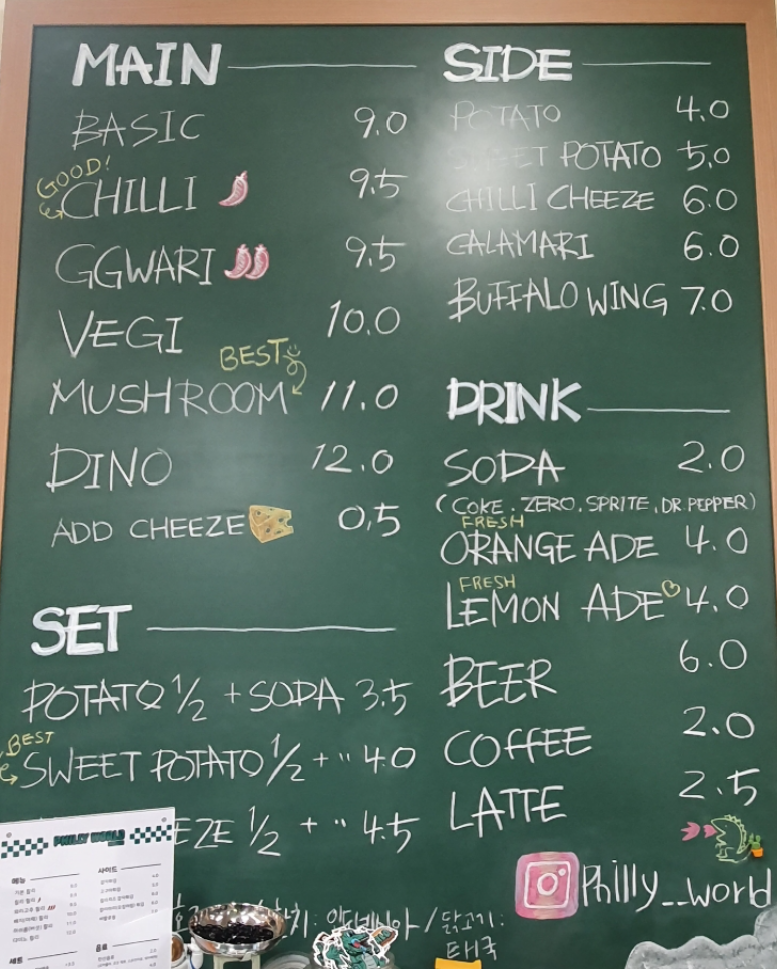 MAIN
BASIC 9.0
GOOD!
CHILLI 9.5
GGWARI 9.5
VEGI 10.0
BEST
MUSHROOM 11.0
DINO 12.0
ADD CHEEZE 0.5
SET
POTATO 1/2 + SODA 3.5
BEST
SWEET POTATO 1/2 + " 4.0
EZE 1/2 + " 4.5
SIDE
POTATO 4.0
SWEET POTATO 5.0
CHILLI CHEEZE 6.0
CALAMARI 6.0
BUFFALO WING 7.0
DRINK
SODA 2.0
(COKE. ZERO. SPRITE. DR.PEPPER)
FRESH
ORANGE ADE 4.0
FRESH
LEMON ADE 4.0
BEER 6.0
COFFEE 2.0
LATTE 2.5
Philly__world
/ 닭고기:
태국
PHILLY WORLD
메뉴
사이드
세트
음료